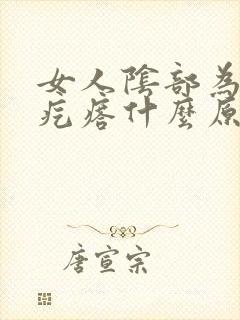 女人陰部為
疙瘩什麼原
唐宣宗